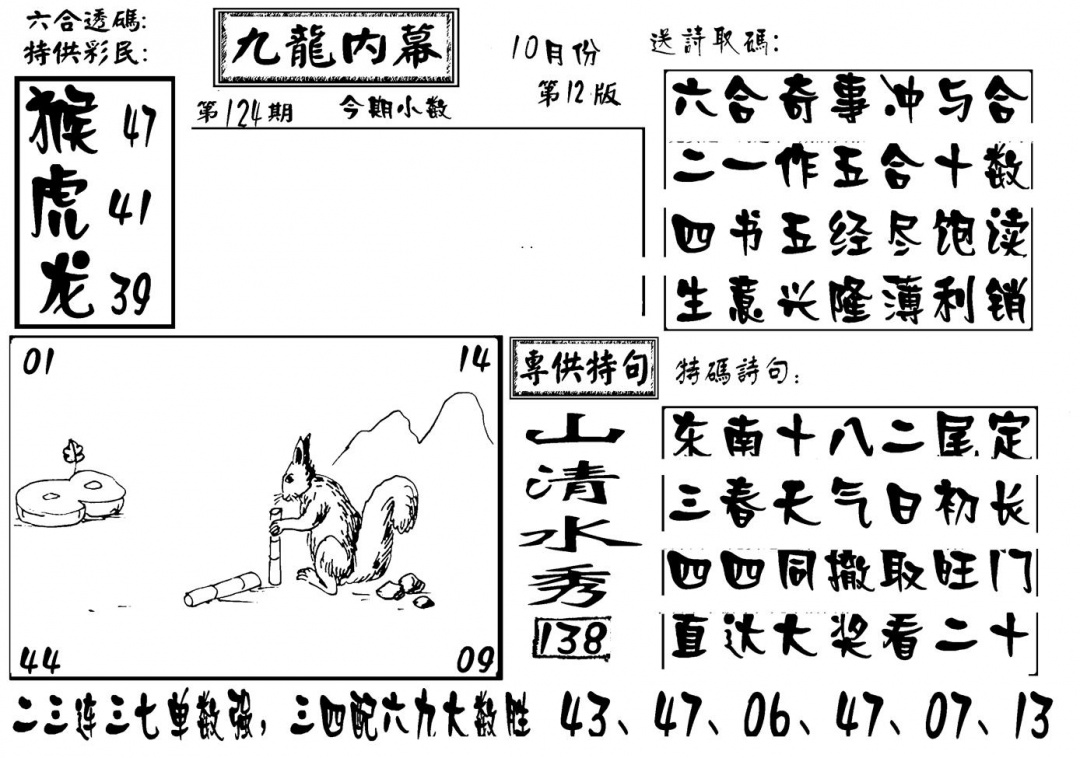 六合透碼:
特供彩民:
猴 47
虎 41
龙 39
九龍内幕
10月份
第12版
第124期 今期小数
送詩取碼:
六合奇事冲与合
二一作五合十数
四书五经尽饱读
生意兴隆薄利销
01 14
44 09
専供特句
山清水秀
138
特碼詩句:
东南十八二尾定
三春天气日初长
四四同撤取旺门
直达大奖看二十
二三连三七单数强，三四配六九大数胜 43、47、06、47、07、13